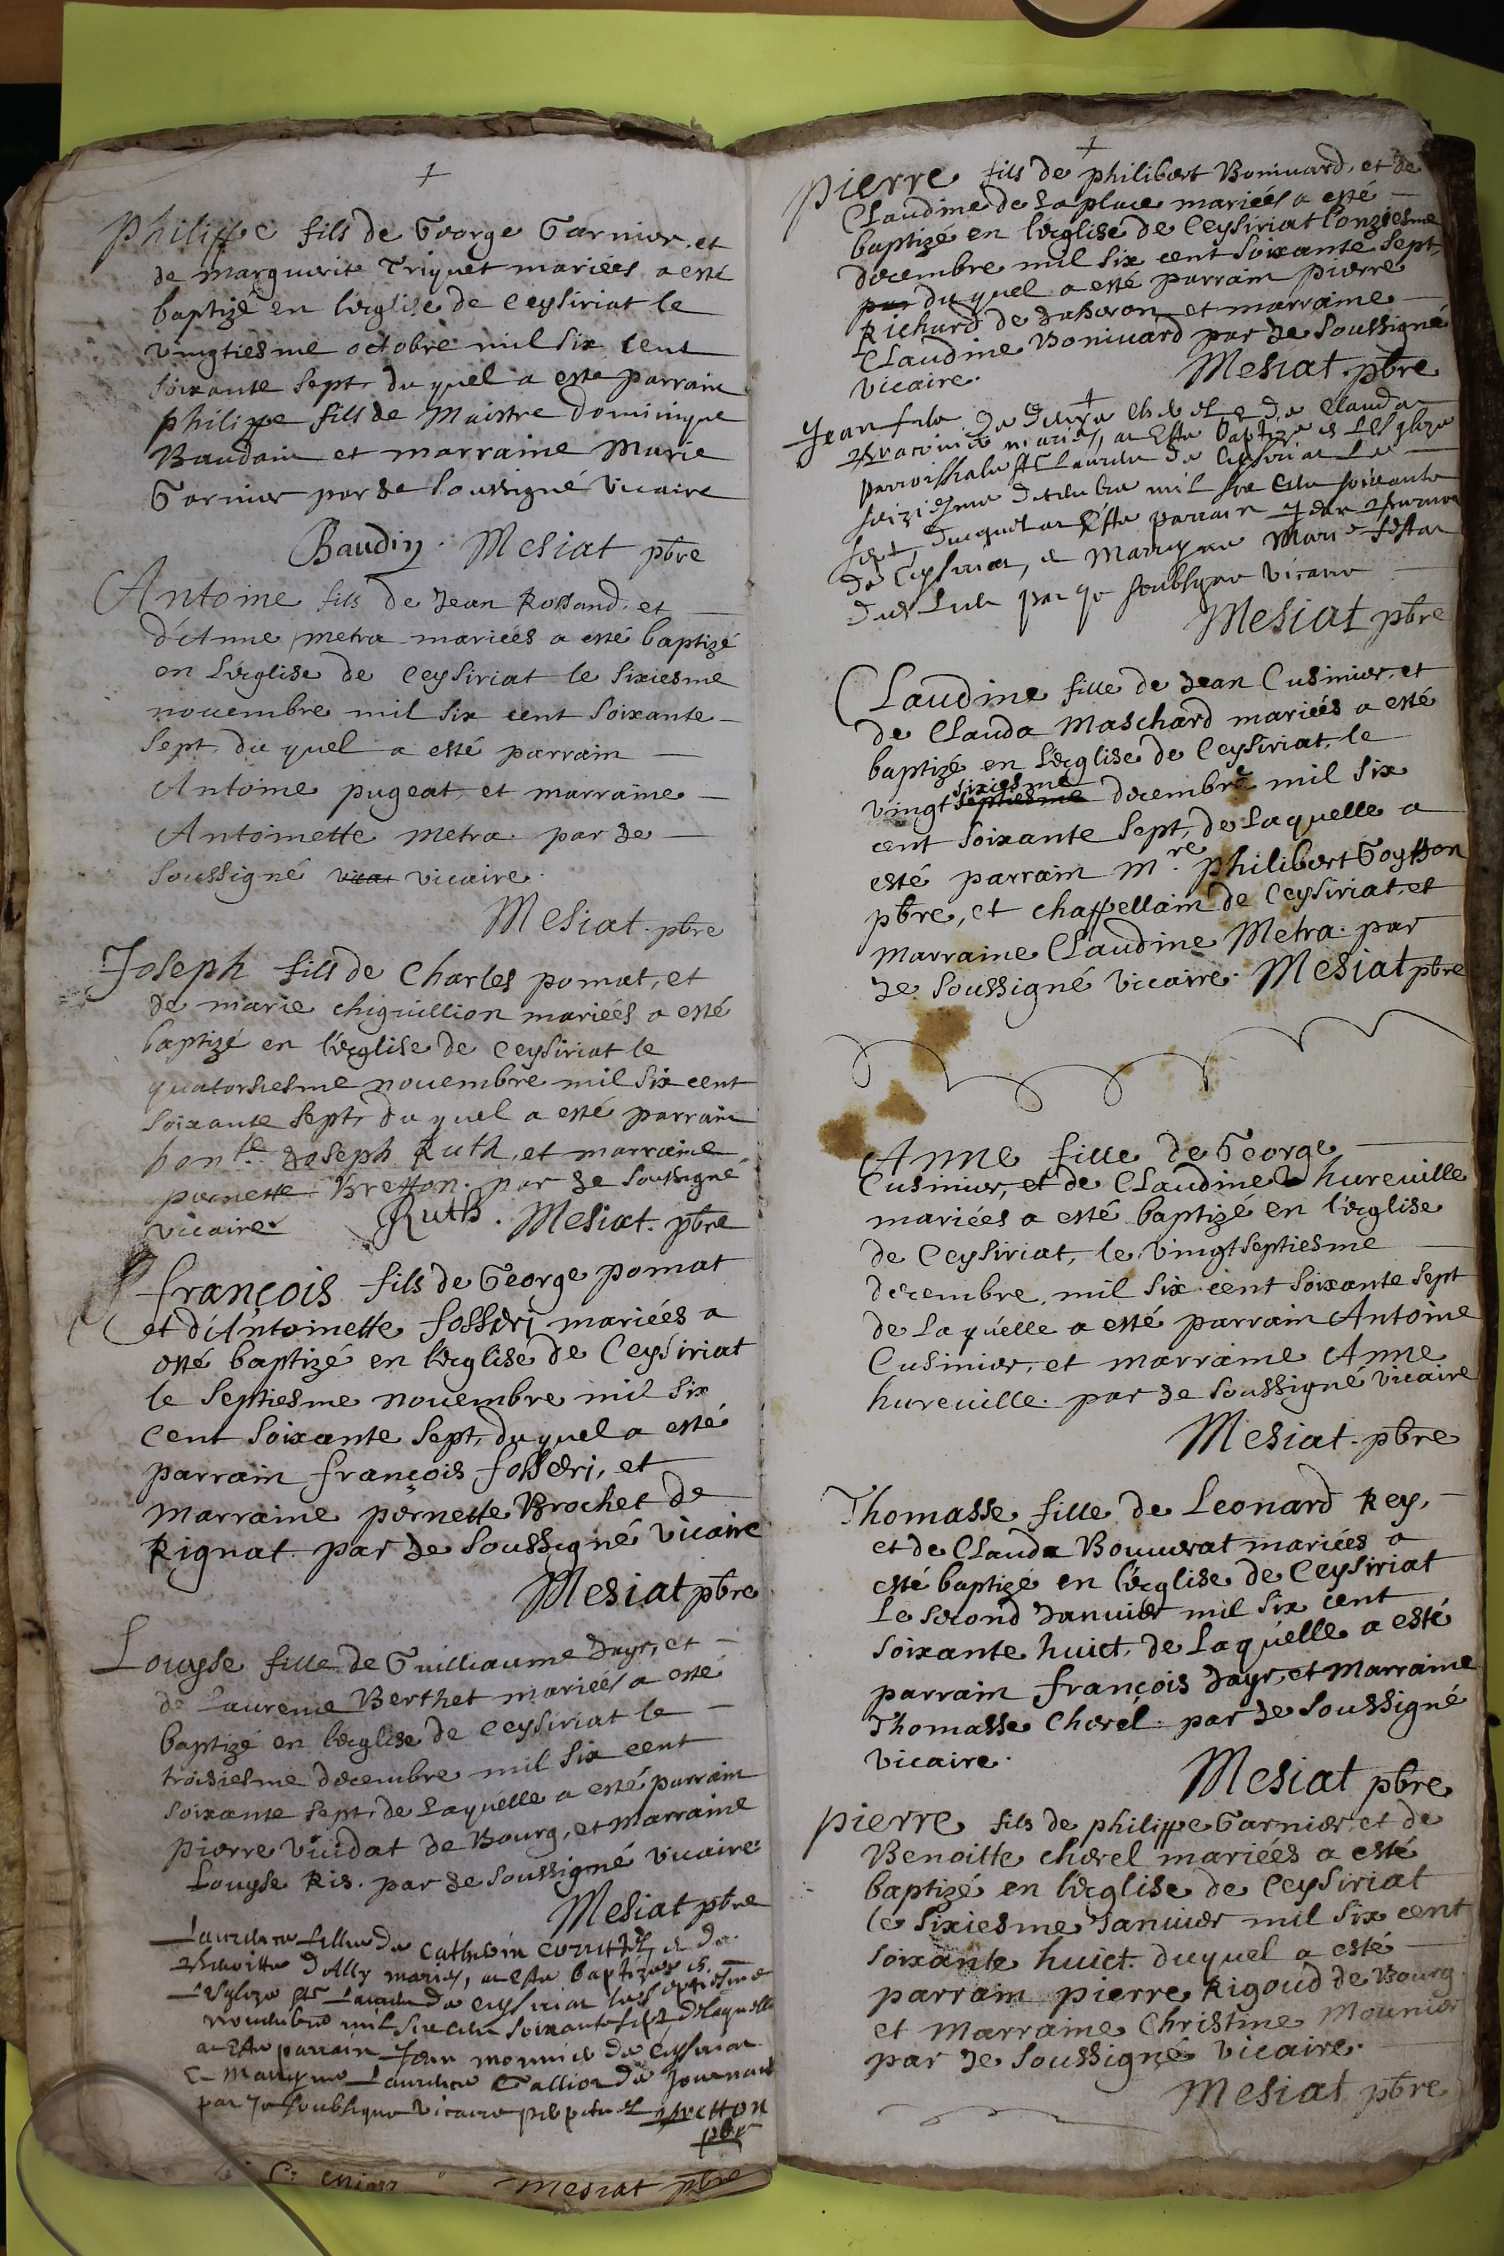 +
Philippe fils de George Garnier, et
de marguerite Triquet mariées a esté
baptizé en l'eglise de Ceysiriat le
vingtiesme octobre mil six cent
soixante sept, du quel a esté parrain
philippe fils de Maistre dominique
Baudain et marraine Marie
Garnier par Je soussigné vicaire
Baudin. Mesiat pbre
Antoine fils de Jean Rolland, et
d'Anne metra mariées a esté baptizé
en l'eglise de Ceysiriat le sixiesme
nouembre mil six cent soixante
sept, du quel a esté parrain
Antoine pugeat, et marraine
Antoinette metra par Je
soussigné vicai vicaire.
Mesiat pbre
Joseph fils de Charles pomat, et
de marie chiquillion mariées a esté
baptizé en l'eglise de Ceysiriat le
quatorsiesme nouembre mil six cent
soixante sept, du quel a esté parrain
hon.te Joseph Ruth, et marraine
pernette Bretton. par Je soussigné
vicaire Ruth. Mesiat. pbre
françois fils de George pomat
et d'Antoinette fosseri mariées a
esté baptizé en l'eglise de Ceysiriat
le septiesme nouembre mil six
Cent soixante sept, duquel a esté
parrain françois fosseri, et
marraine pernette Brochet de
Rignat par Je soussigné vicaire
Mesiat pbre
Louyse fille de Guilliaume Dayr, et
de Laurence Berthet mariées a esté
baptizé en l'eglise de Ceysiriat le
troisiesme decembre mil six cent
soixante sept, de laquelle a esté parrain
pierre vuidat de Bourg, et marraine
Louyse Ris. par Je soussigné vicaire
Mesiat pbre
Laurence fillie de Catherin et de
Benoitte d'Ally mariés, a Esté baptizée en
l'Esglize de Ceysiriat le septiesme
nouembre mil six cents soixante sept delaquelle
a Esté parrain Jean monnier de Ceysiriat
Et Marrynne Laurence Gallion de Journant
par Je soubsigné vicaire Bretton
pbr
Mesiat pbre
+
pierre fils de philibert Boniuard, et de
Claudine de la place mariées a esté
baptizé en l'eglise de Ceysiriat l'onziesme
decembre mil six cent soixante sept,
par du quel a esté parrain pierre
Richard de Jasseron et marraine
Claudine Boniuard par Je soussigné
vicaire. Mesiat. pbre
+
Jean fils de et de Clauda
mariés, a Esté baptizé en l'Esglize
parroissiale St Laurens de Ceysiriat Le
seiziesme decembre mil six cents soixante
sept, duquel a Esté parrain Jean
de Ceysiriat, et Marrynne Marie
par Je soubsigné vicaire
Mesiat pbre
Claudine fille de Jean Cusinier, et
de Clauda Maschard mariées a esté
baptizé en l'eglise de Ceysiriat, le
sixiesme
vingt septiesme decembre mil six
cent soixante sept, de laquelle a
esté parrain m.re philibert Goyffon
pbre, et chappellain de Ceysiriat, et
marraine Claudine Metra par
Je soussigné vicaire. Mesiat pbre
Anne fille de George
Cusinier, et de Claudine hureuille
mariées a esté baptizé en l'eglise
de Ceysiriat, le vingtseptiesme
decembre, mil six cent soixante sept
de laquelle a esté parrain Antoine
Cusinier, et marraine Anne
hureuille. par Je soussigné vicaire
Mesiat. pbre
Thomasse fille de Leonard Rey,
et de Clauda Bouuerat mariées a
esté baptizé en l'eglise de Ceysiriat
Le second Januier mil six cent
soixante huict, de laquelle a esté
parrain françois Dayr, et marraine
Thomasse Cherel. par Je soussigné
vicaire.
Mesiat pbre
pierre fils de philippe Garnier, et de
Benoitte cherel mariées a esté
baptizé en l'eglise de Ceysiriat
le sixiesme Januier mil six cent
soixante huict. duquel a esté
parrain pierre Rigoud de Bourg
et marraine Christine Mounier
par Je soussigné vicaire.
Mesiat pbre